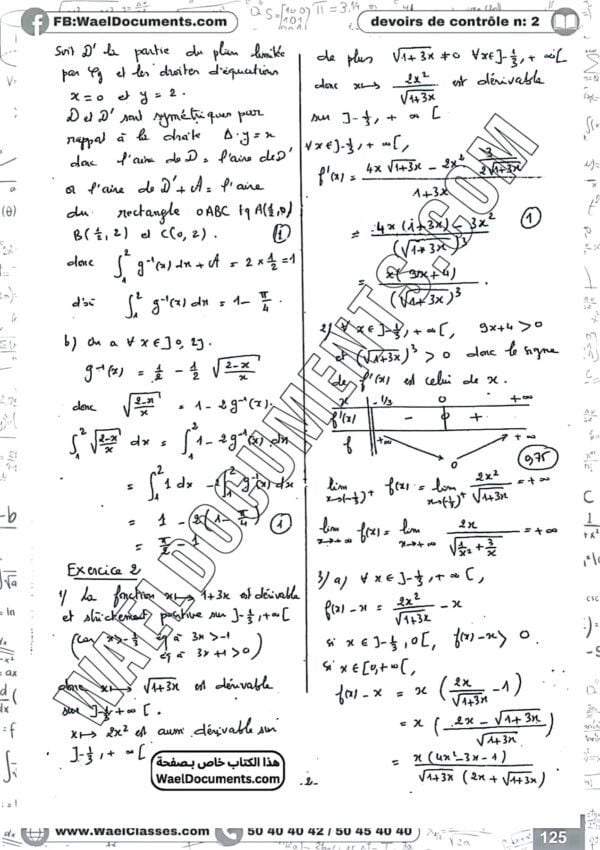 FB:WaelDocuments.com
devoirs de contrôle n: 2
Soit D' la partie du plan limitée
par Cg et les droites d'équations
x=0 et y=2.
D et D' sont symétriques par
rapport à la droite Δ: y=x
donc l'aire de D = l'aire de D'
or l'aire de D' + A = l'aire
du rectangle OABC tq A(1/2,0)
B(1/2,2) et C(0,2).
donc ∫₁² g⁻¹(x) dx + A = 2 × 1/2 = 1
d'où ∫₁² g⁻¹(x) dx = 1 - π/4.
b) On a ∀ x ∈ ]0,2].
g⁻¹(x) = 1/2 - 1/2 √((2-x)/x)
donc √((2-x)/x) = 1 - 2g⁻¹(x).
∫₁² √((2-x)/x) dx = ∫₁² 1 - 2g⁻¹(x) dx
= ∫₁² 1 dx - 2∫₁² g⁻¹(x) dx
= 1 - 2(1 - π/4)
1
= π/2 - 1
Exercice 2
1/ La fonction x ↦ 1+3x est dérivable
et strictement positive sur ]-1/3, +∞[
(car x > -1/3 éq à 3x > -1
éq à 3x+1 > 0)
donc x ↦ √(1+3x) est dérivable
sur ]-1/3, +∞[.
x ↦ 2x² est aussi dérivable sur
]-1/3, +∞[
de plus √(1+3x) ≠ 0 ∀x∈]-1/3, +∞[
donc x ↦ 2x²/√(1+3x) est dérivable
sur ]-1/3, +∞[
∀x∈]-1/3, +∞[,
f'(x) = (4x √(1+3x) - 2x² 3/(2√(1+3x)))/(1+3x)
= (4x(1+3x) - 3x²)/(√(1+3x))³
1
= x(9x+4)/(√(1+3x))³.
2/ ∀ x ∈ ]-1/3, +∞[, 9x+4 > 0
et (√(1+3x))³ > 0 donc le signe
de f'(x) est celui de x.
x -1/3 0 +∞
f'(x) - 0 +
f +∞ 0 +∞
0,75
lim x→(-1/3)⁺ f(x) = lim x→(-1/3)⁺ 2x²/√(1+3x) = +∞
lim x→+∞ f(x) = lim x→+∞ 2x/√(1/x² + 3/x) = +∞
3/ a) ∀ x ∈ ]-1/3, +∞[,
f(x) - x = 2x²/√(1+3x) - x
si x ∈ ]-1/3, 0[, f(x) - x > 0.
si x ∈ [0, +∞[,
f(x) - x = x (2x/√(1+3x) - 1)
= x ((2x - √(1+3x))/√(1+3x))
= x(4x²-3x-1)/(√(1+3x) (2x + √(1+3x)))
WAELDOCUMENTS.COM
هذا الكتاب خاص بصفحة
WaelDocuments.com
-2-
www.WaelClasses.com
50 40 40 42 / 50 45 40 40
125